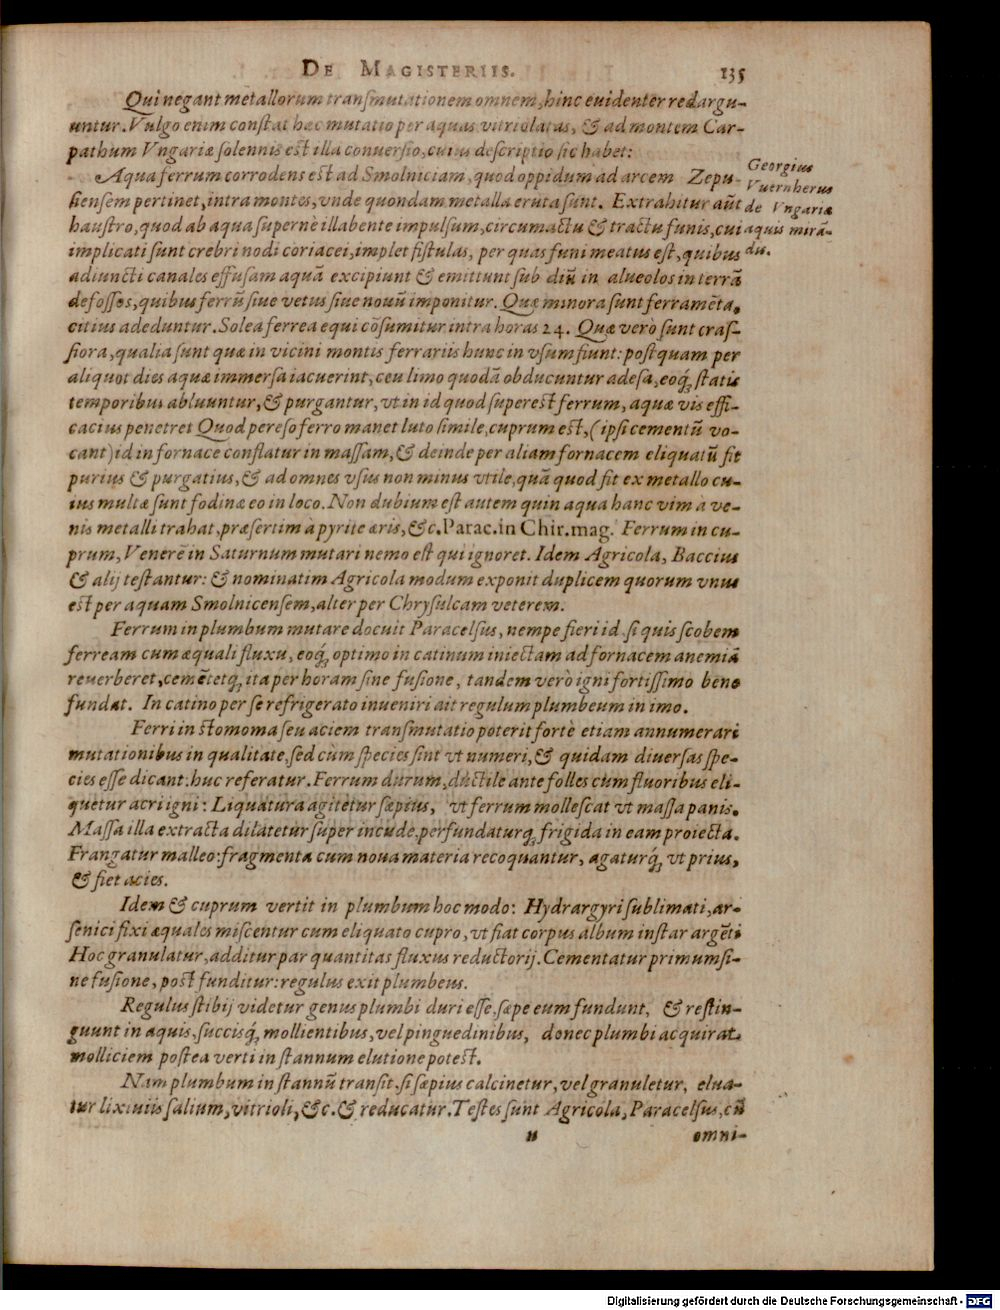 DE MAGISTERIIS. 135
Qui negant metallorum transmutationem omnem, hinc euidenter redargu-
untur. Vulgo enim constat hæc mutatio per aquas vitriolatas, & ad montem Car-
pathum Vngariæ solennis est illa conuersio, cuius descriptio sic habet:
Aqua ferrum corrodens est ad Smolniciam, quod oppidum ad arcem Zepu-
siensem pertinet, intra montes, vnde quondam metalla eruta sunt. Extrahitur aũt
haustro, quod ab aqua supernè illabente impulsum, circumactu & tractu funis, cui
implicati sunt crebri nodi coriacei, implet fistulas, per quas funi meatus est, quibus
adiuncti canales effusam aquã excipiunt & emittunt sub diũ in alueolos in terrã
defossos, quibius ferrũ siue vetus siue nouũ imponitur. Quæ minora sunt ferramẽta,
citius adeduntur. Solea ferrea equi cõsumitur intra horas 24. Quæ verò sunt cras-
siora, qualia sunt quæ in vicini montis ferrariis hunc in vsum fiunt: postquam per
aliquot dies aquæ immersa iacuerint, ceu limo quodã obducuntur adesa, eoq́ statis
temporibus abluuntur, & purgantur, vt in id quod superest ferrum, aquæ vis effi-
cacius penetret Quod pereso ferro manet luto simile, cuprum est, (ipsi cementũ vo-
cant) id in fornace conflatur in massam, & deinde per aliam fornacem eliquatũ fit
purius & purgatius, & ad omnes vsus non minus vtile, quã quod fit ex metallo cu-
ius multæ sunt fodinæ eo in loco. Non dubium est autem quin aqua hanc vim à ve-
nis metalli trahat, præsertim à pyrite æris, &c. Parac. in Chir. mag. Ferrum in cu-
prum, Venerẽ in Saturnum mutari nemo est qui ignoret. Idem Agricola, Baccius
& alij testantur: & nominatim Agricola modum exponit duplicem quorum vnus
est per aquam Smolnicensem, alter per Chrysulcam veterem.
Ferrum in plumbum mutare docuit Paracelsus, nempe fieri id, si quis scobem
ferream cum æquali fluxu, eoq́ optimo in catinum iniectam ad fornacem anemiã
reuerberet, cemẽtetq́, ita per horam sine fusione, tandem verò igni fortissimo bene
fundat. In catino per se refrigerato inueniri ait regulum plumbeum in imo.
Ferri in stomoma seu aciem transmutatio poterit fortè etiam annumerari
mutationibus in qualitate, sed cùm species sint vt numeri, & quidam diuersas spe-
cies esse dicant: huc referatur. Ferrum durum, ductile ante folles cum fluoribus eli-
quetur acri igni: Liquatura agitetur sæpius, vt ferrum mollescat vt massa panis.
Massa illa extracta dilatetur super incude, perfundaturq́ frigida in eam proiecta.
Frangatur malleo: fragmenta cum noua materia recoquantur, agaturq́ vt prius,
& fiet acies.
Idem & cuprum vertit in plumbum hoc modo: Hydrargyri sublimati, ar-
senici fixi æquales miscentur cum eliquato cupro, vt fiat corpus album instar argẽti
Hoc granulatur, additur par quantitas fluxus reductorij. Cementatur primum si-
ne fusione, post funditur: regulus exit plumbeus.
Regulus stibij videtur genus plumbi duri esse, sæpe eum fundunt, & restin-
guunt in aquis, succisq́ mollientibus, vel pinguedinibus, donec plumbi acquirat
molliciem postea verti in stannum elutione potest.
Nam plumbum in stannũ transit, si sæpius calcinetur, vel granuletur, elua-
tur lixiuiis salium, vitrioli, &c. & reducatur. Testes sunt Agricola, Paracelsus, cũ
n omni-
Georgius
Vuernherus
de Vngariæ
aquis mirã-
dis.
Digitalisierung gefördert durch die Deutsche Forschungsgemeinschaft - DFG